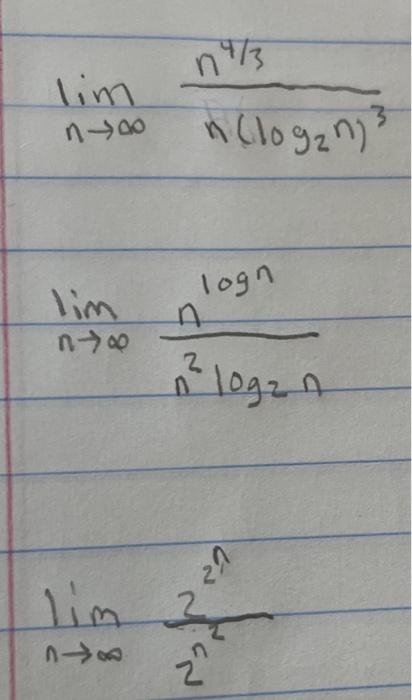 lim n→∞ n^4/3 / n(log₂n)³
lim n→∞ n^logn / n² log₂ n
lim n→∞ 2^2^n / 2^n^2